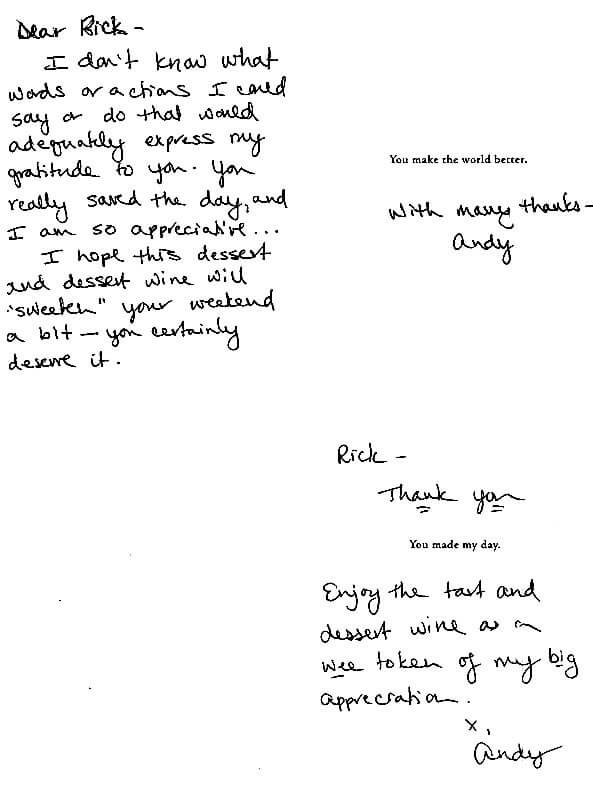 Dear Rick -
I don't know what
words or actions I could
say or do that would
adequately express my
gratitude to you. You
really saved the day, and
I am so appreciative...
I hope this dessert
and dessert wine will
"sweeten" your weekend
a bit — you certainly
deserve it.
You make the world better.
With many thanks -
Andy
Rick -
Thank you
You made my day.
Enjoy the tart and
dessert wine as a
wee token of my big
appreciation.
x,
Andy